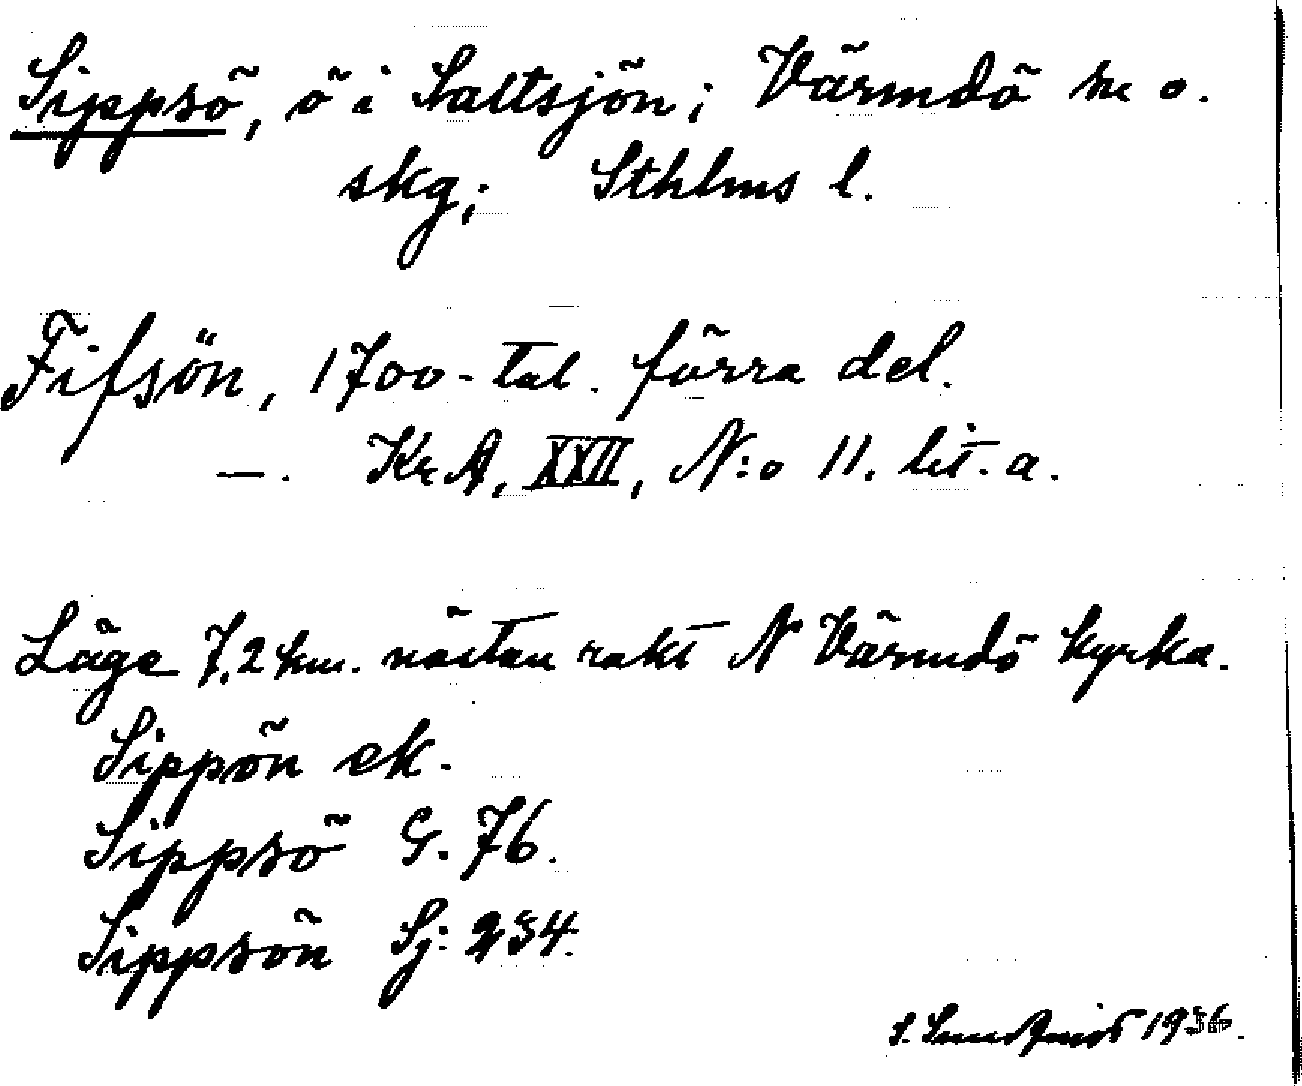 Sippsö, ö i Saltsjön; Värmdö sn o.
skg; Sthlms l.
Fifsön, 1700-tal. förra del.
—. KrA, XXII, N:o 11. lit. a.
Läge 7,2 km. nästan rakt N Värmdö kyrka.
Sippön ek.
Sippsö G. 76.
Sippsön Sj: 234.
S. 1936.